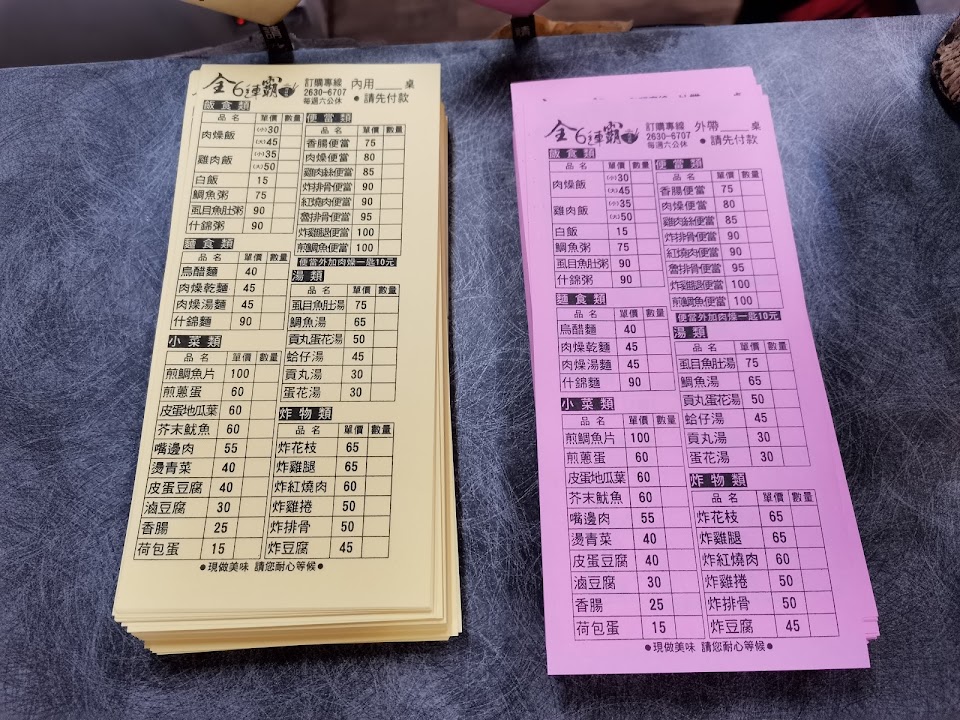 全6連霸
訂購專線
2630-6707
每週六公休
內用____桌
●請先付款
飯食類
品名 單價 數量
肉燥飯 (小)30
(大)45
雞肉飯 (小)35
(大)50
白飯 15
鯛魚粥 75
虱目魚肚粥 90
什錦粥 90
麵食類
品名 單價 數量
烏醋麵 40
肉燥乾麵 45
肉燥湯麵 45
什錦麵 90
小菜類
品名 單價 數量
煎鯛魚片 100
煎蔥蛋 60
皮蛋地瓜葉 60
芥末魷魚 60
嘴邊肉 55
燙青菜 40
皮蛋豆腐 40
滷豆腐 30
香腸 25
荷包蛋 15
便當類
品名 單價 數量
香腸便當 75
肉燥便當 80
雞肉絲便當 85
炸排骨便當 90
紅燒肉便當 90
魯排骨便當 95
炸雞腿便當 100
煎鯛魚便當 100
便當外加肉燥一匙10元
湯類
品名 單價 數量
虱目魚肚湯 75
鯛魚湯 65
貢丸蛋花湯 50
蛤仔湯 45
貢丸湯 30
蛋花湯 30
炸物類
品名 單價 數量
炸花枝 65
炸雞腿 65
炸紅燒肉 60
炸雞捲 50
炸排骨 50
炸豆腐 45
●現做美味 請您耐心等候●
全6連霸
訂購專線
2630-6707
每週六公休
外帶____桌
●請先付款
飯食類
品名 單價 數量
肉燥飯 (小)30
(大)45
雞肉飯 (小)35
(大)50
白飯 15
鯛魚粥 75
虱目魚肚粥 90
什錦粥 90
麵食類
品名 單價 數量
烏醋麵 40
肉燥乾麵 45
肉燥湯麵 45
什錦麵 90
小菜類
品名 單價 數量
煎鯛魚片 100
煎蔥蛋 60
皮蛋地瓜葉 60
芥末魷魚 60
嘴邊肉 55
燙青菜 40
皮蛋豆腐 40
滷豆腐 30
香腸 25
荷包蛋 15
便當類
品名 單價 數量
香腸便當 75
肉燥便當 80
雞肉絲便當 85
炸排骨便當 90
紅燒肉便當 90
魯排骨便當 95
炸雞腿便當 100
煎鯛魚便當 100
便當外加肉燥一匙10元
湯類
品名 單價 數量
虱目魚肚湯 75
鯛魚湯 65
貢丸蛋花湯 50
蛤仔湯 45
貢丸湯 30
蛋花湯 30
炸物類
品名 單價 數量
炸花枝 65
炸雞腿 65
炸紅燒肉 60
炸雞捲 50
炸排骨 50
炸豆腐 45
●現做美味 請您耐心等候●